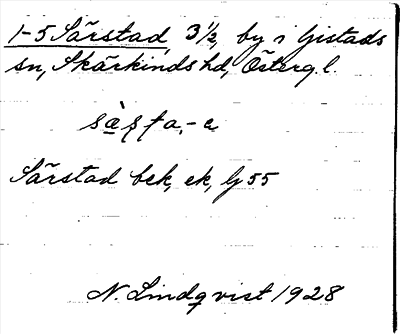 1-5 Särstad, 3 1/2, by i Gistads
sn, Skärkinds hd, Östergl.
Särstad bek, ek, Gj 55
N. Lindqvist 1928